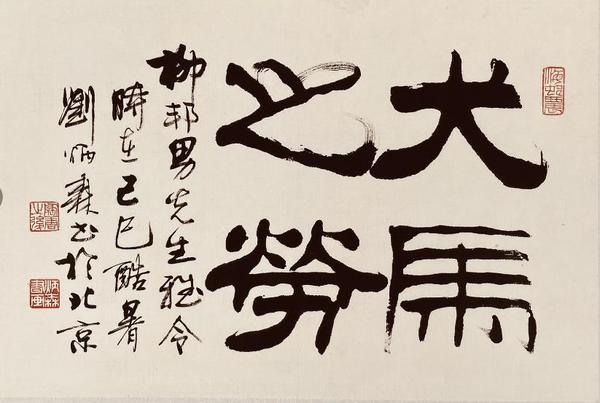 犬馬
之勞
柳邦男先生雅令
時在己巳酷暑
劉炳森书於北京